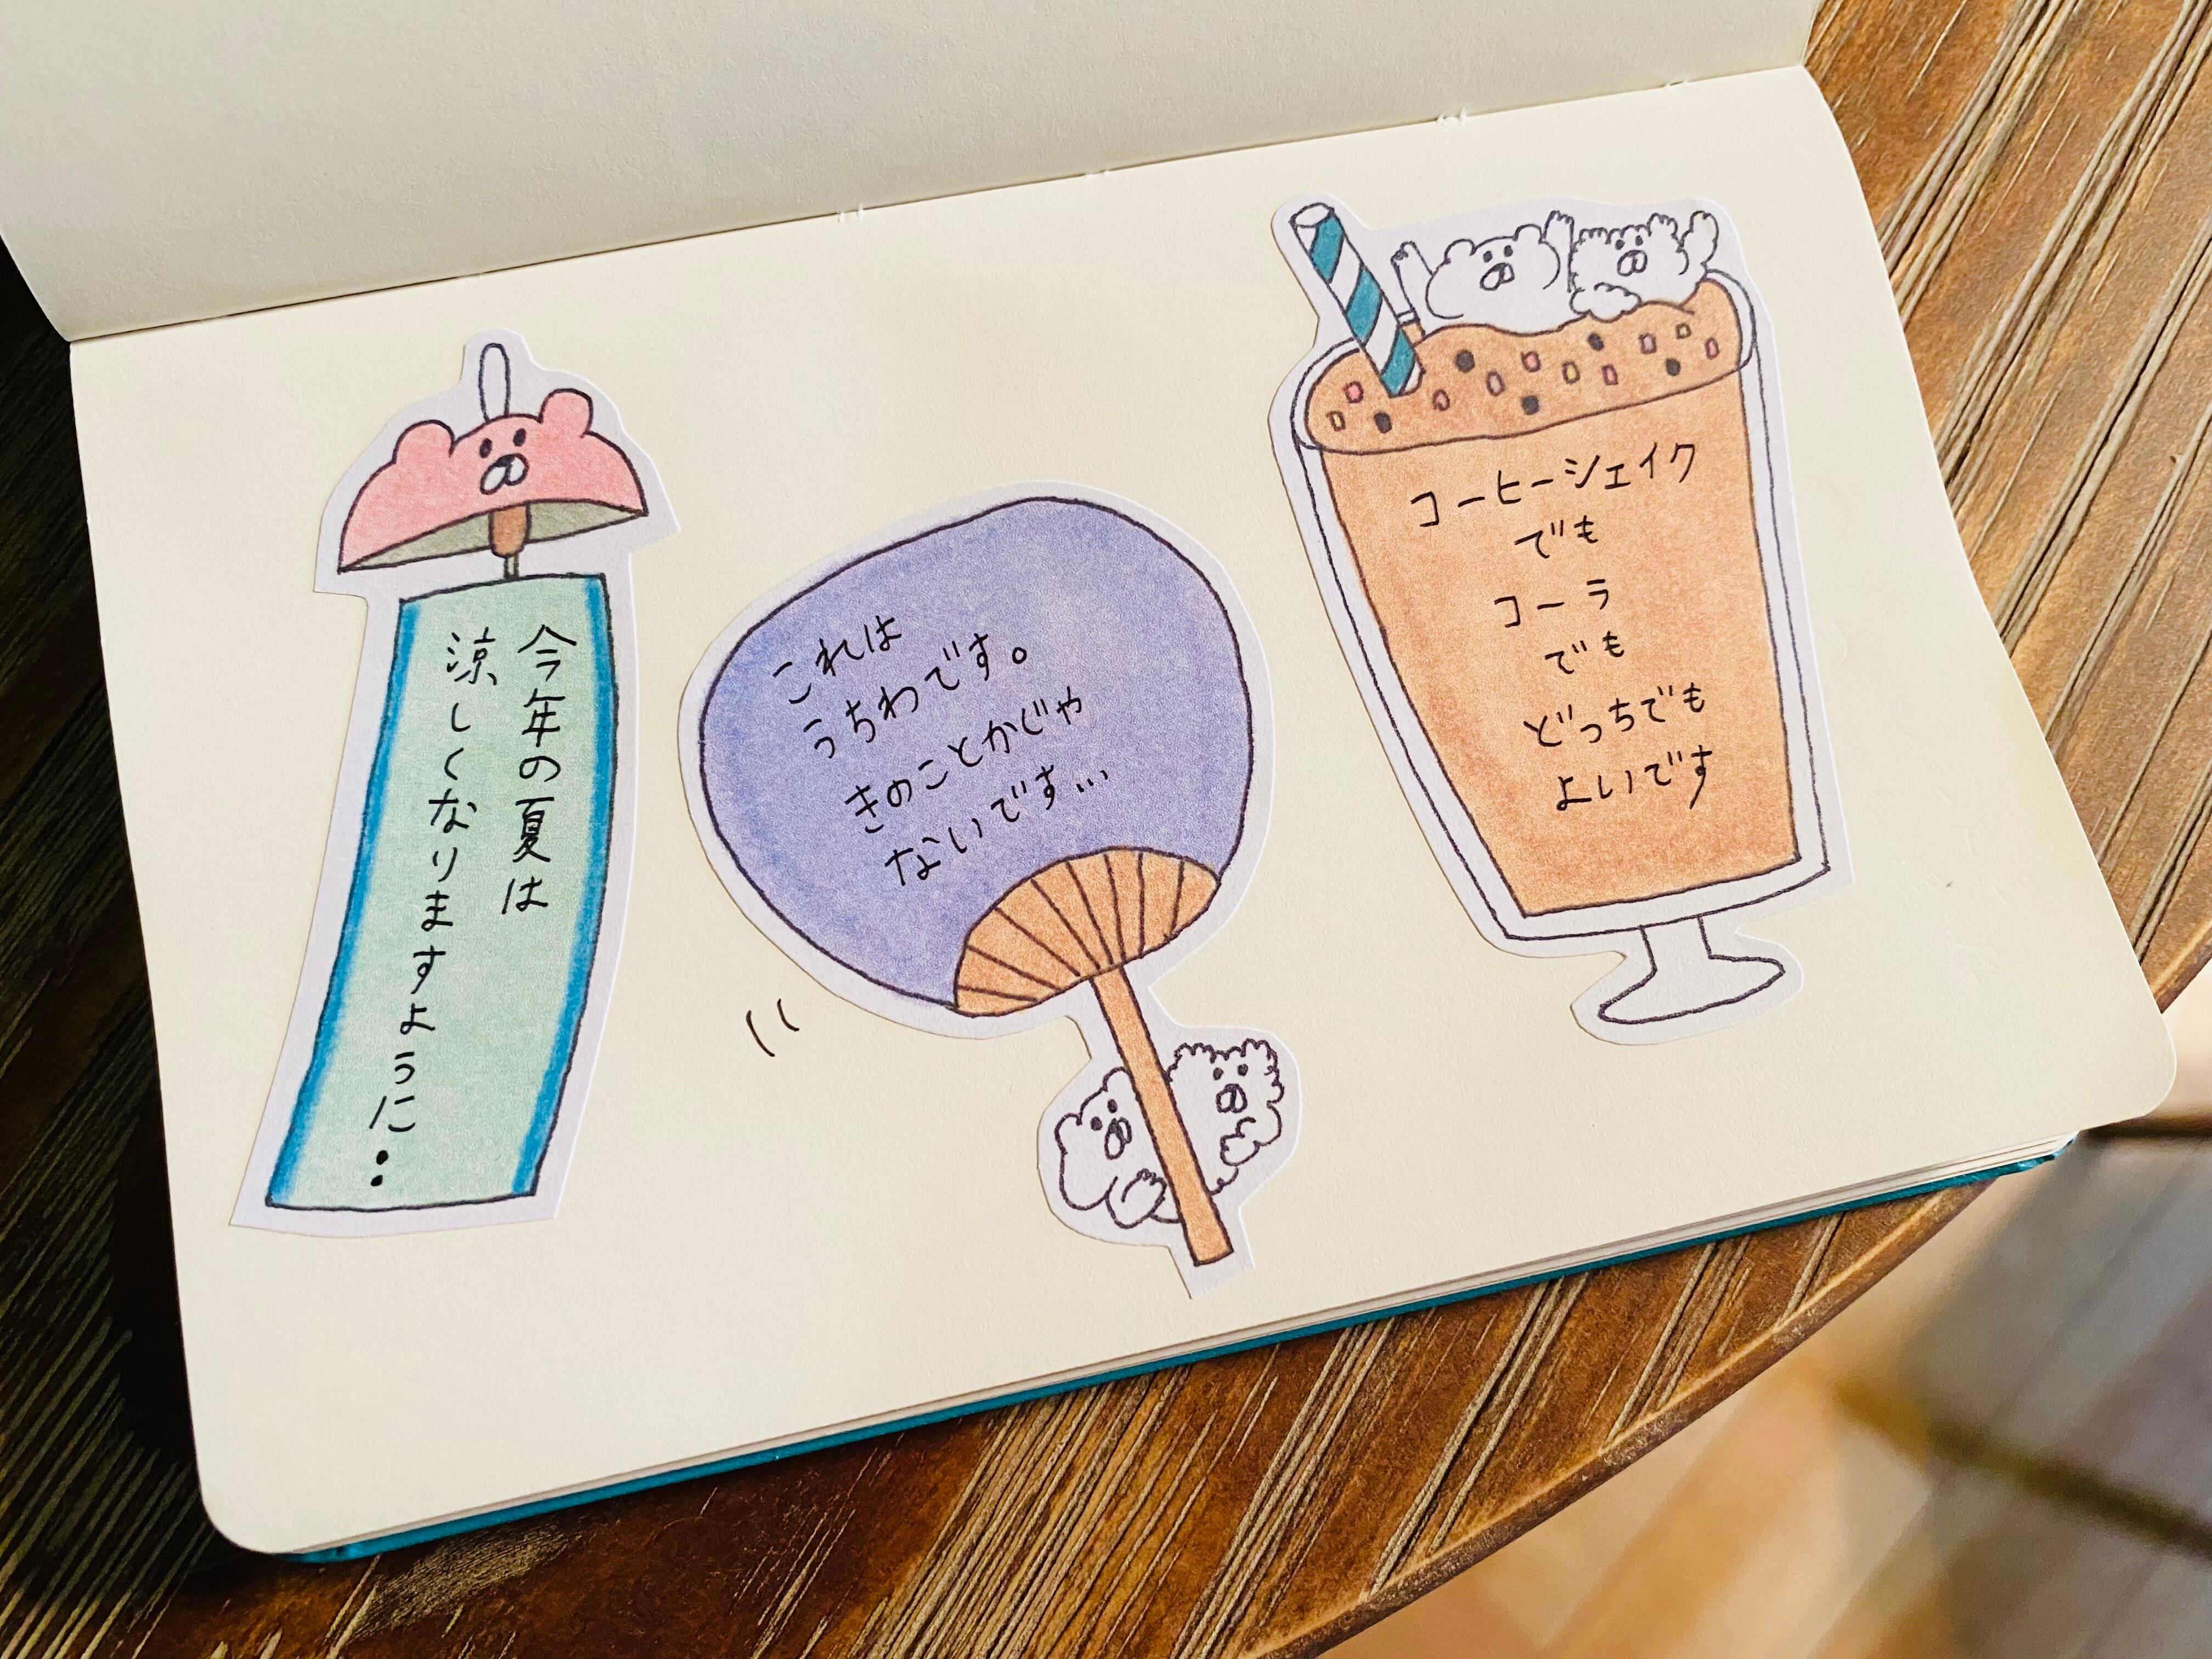 今年の夏は
涼しくなりますように：
これは
うちわです。
きのことかじゃ
ないです…
コーヒーシェイク
でも
コーラ
でも
どっちでも
よいです